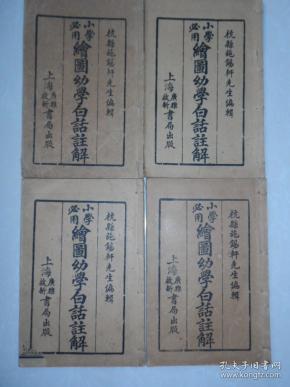 杭縣施錫軒先生編輯
小學必用
繪圖幼學白話註解
上海廣雅啟新書局出版
杭縣施錫軒先生編輯
小學必用
繪圖幼學白話註解
上海廣雅啟新書局出版
杭縣施錫軒先生編輯
小學必用
繪圖幼學白話註解
上海廣雅啟新書局出版
杭縣施錫軒先生編輯
小學必用
繪圖幼學白話註解
上海廣雅啟新書局出版
孔夫子旧书网